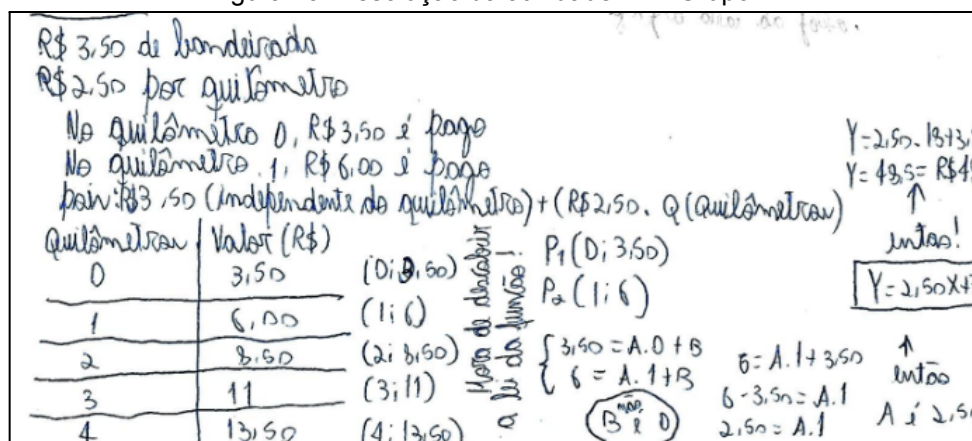 R$ 3,50 de bandeirada
R$ 2,50 por quilômetro
No quilômetro 0, R$ 3,50 é pago
No quilômetro 1, R$ 6,00 é pago
R$3,50 (independente do quilômetro) + (R$2,50. Q (Quilômetros)
Quilômetros Valor (R$)
0 3,50 (0; 3,50)
1 6,00 (1; 6)
2 8,50 (2; 8,50)
3 11 (3; 11)
4 13,50 (4; 13,50)
Hora de descobrir
a lei da função!
P1 (0; 3,50)
P2 (1; 6)
3,50 = A.0 + B
6 = A.1 + B
B não é 0
6 = A.1 + 3,50
6 - 3,50 = A.1
2,50 = A.1
Y = 2,50. 18+3,
Y =
então!
Y = 2,50X+
então
A é 2,5